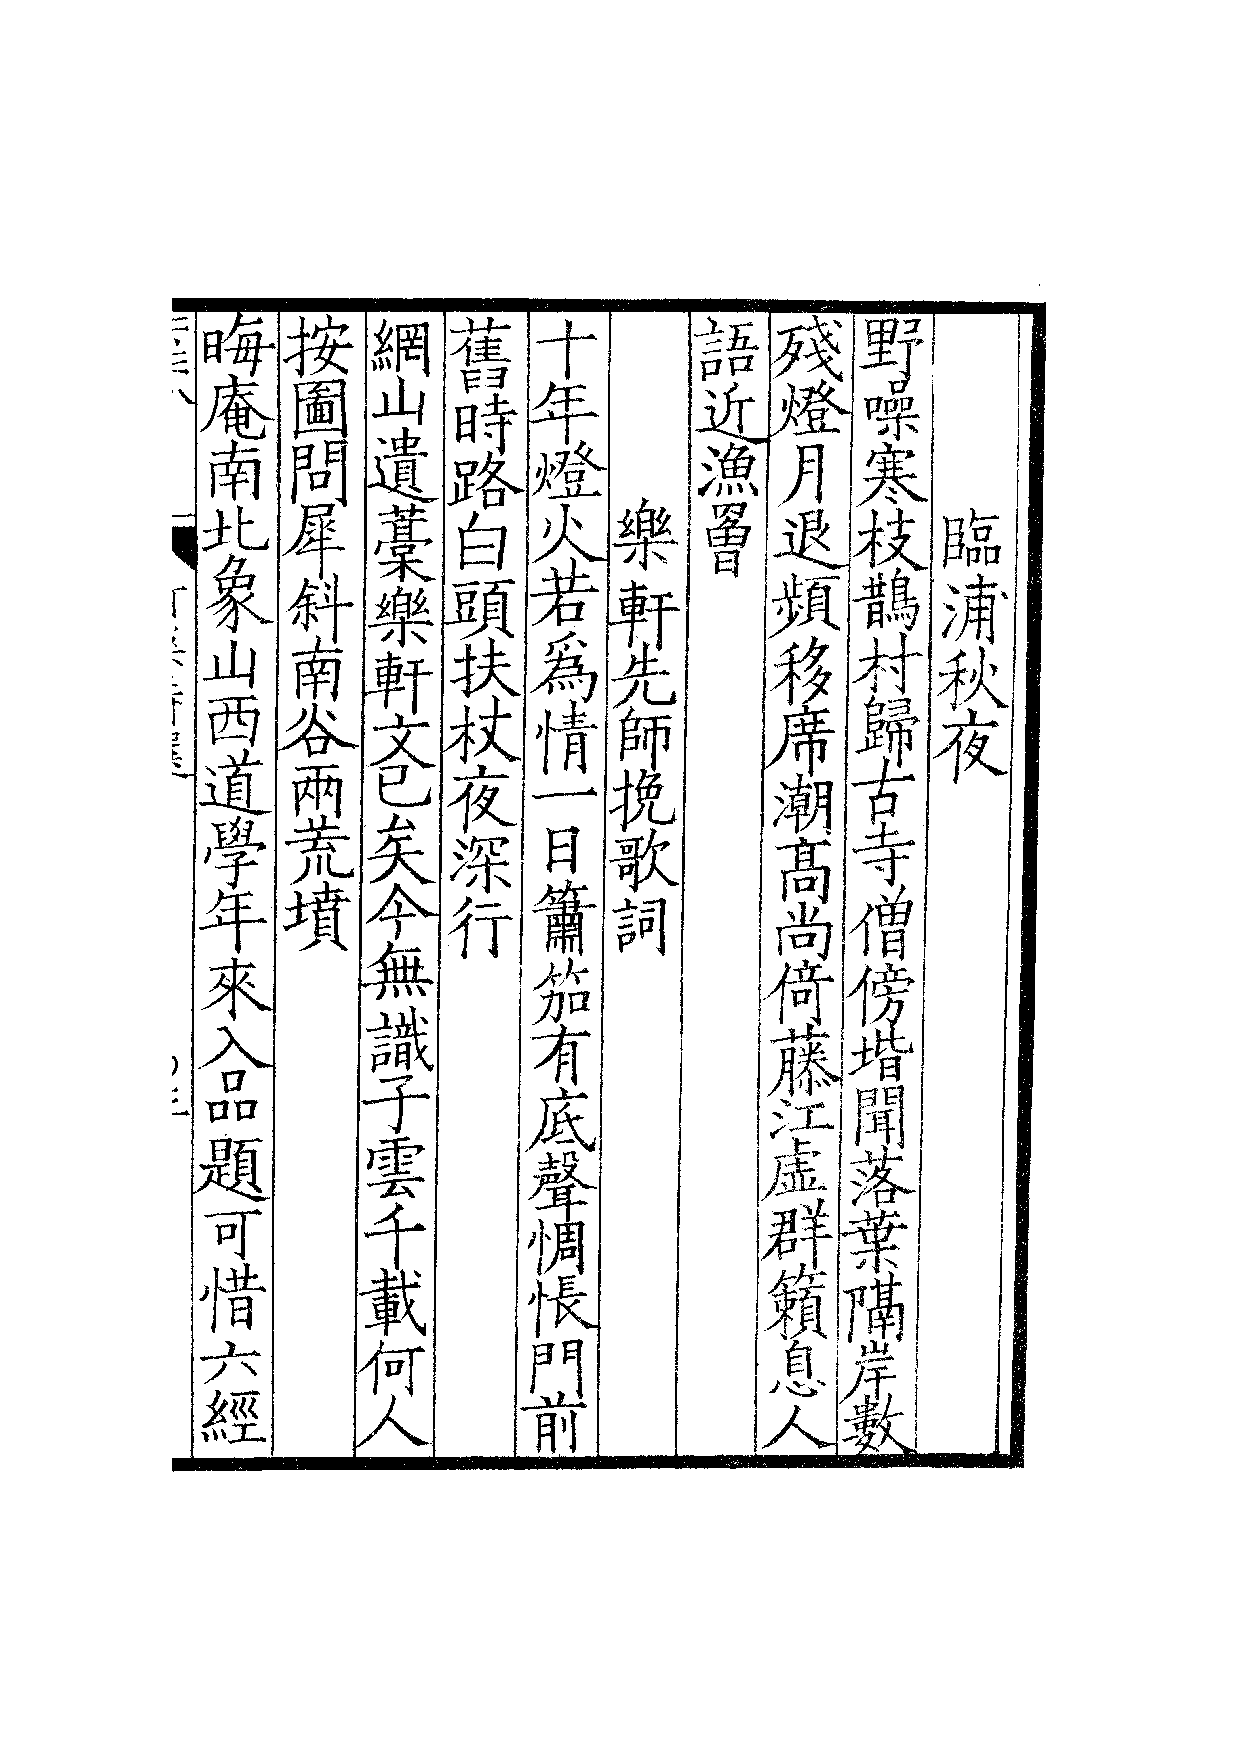 臨浦秋夜
野噪寒枝鵲村歸古寺僧傍堦聞落葉隔岸數
殘燈月退頻移席潮髙尚倚藤江虚群籟息人
語近漁罾
樂軒先師挽歌詞
十年燈火若爲情一日簫笳有底聲惆悵門前
舊時路白頭扶杖夜深行
網山遺藁樂軒文已矣今無識子雲千載何人
按圖問犀斜南谷兩荒墳
晦庵南北象山西道學年來入品題可惜六經